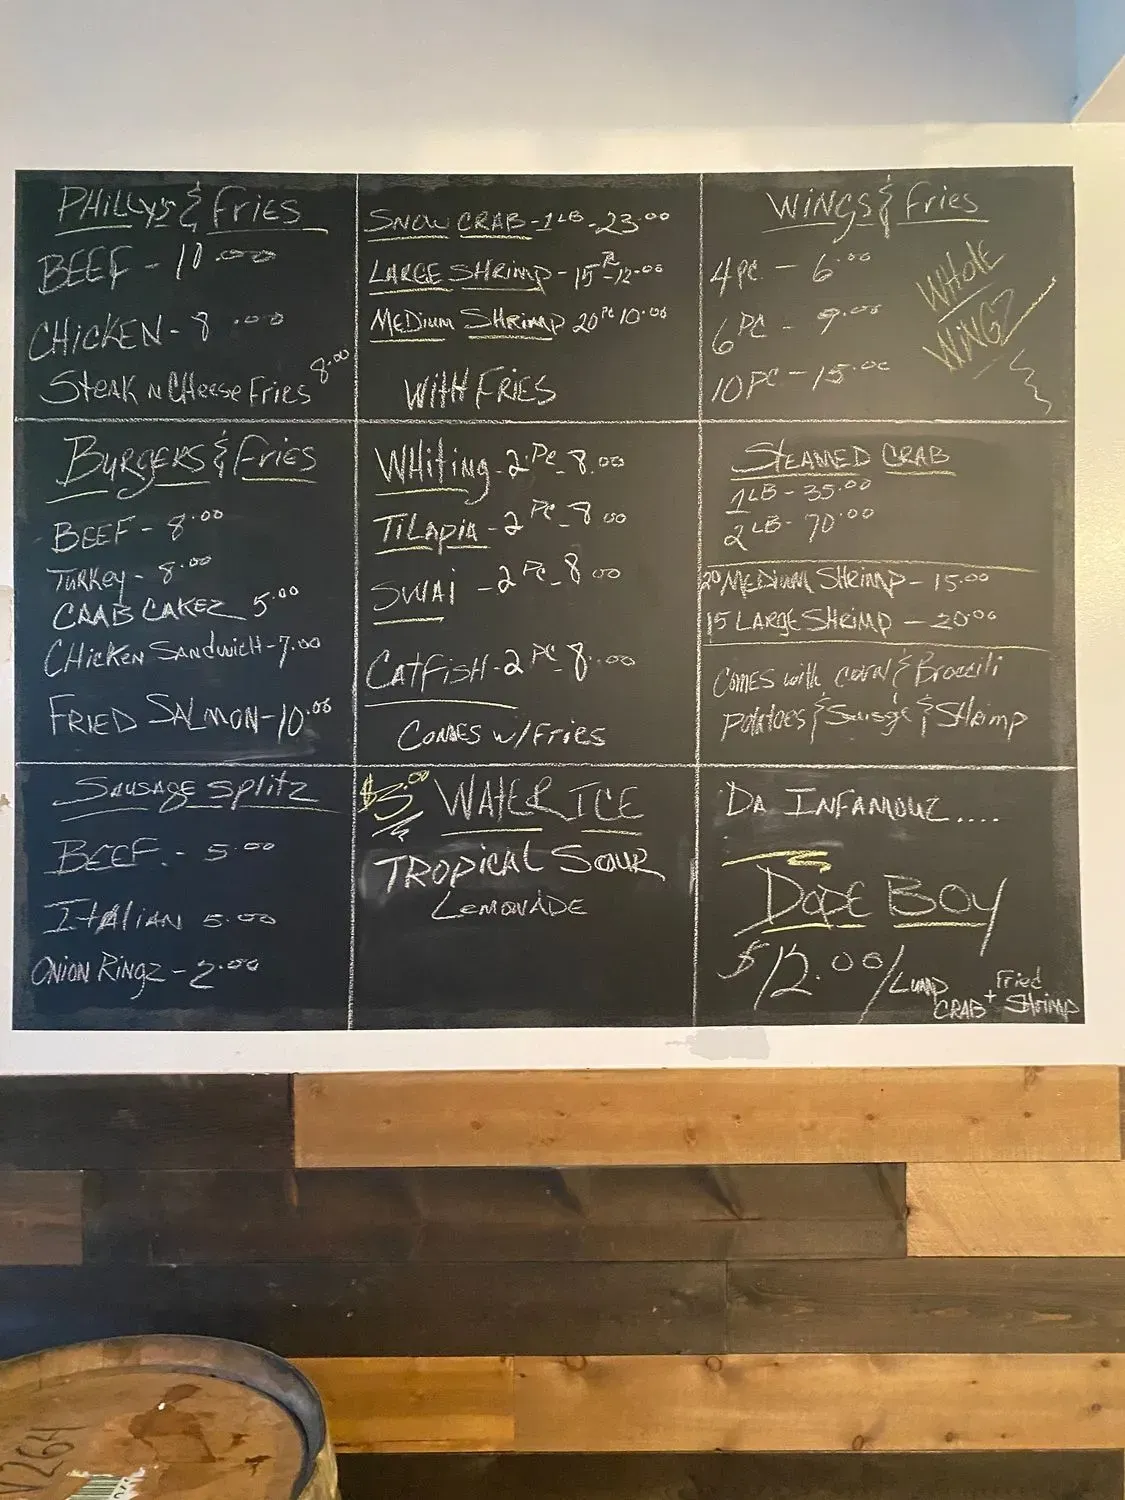 PHILLYS & FRIES
BEEF - 10.00
CHICKEN - 8.00
STEAK N CHEESE FRIES 8.00
SNOW CRAB - 1 LB - 23.00
LARGE SHRIMP - 15 PC - 12.00
MEDIUM SHRIMP 20 PC 10.00
WITH FRIES
WINGS & FRIES
4 PC - 6.00
6 PC - 9.00
10 PC - 15.00
WHOLE
WINGZ
BURGERS & FRIES
BEEF - 8.00
TURKEY - 8.00
CRAB CAKEZ 5.00
CHICKEN SANDWICH - 7.00
FRIED SALMON - 10.00
WHITING - 2 PC - 8.00
TILAPIA - 2 PC - 8.00
SWAI - 2 PC - 8.00
CATFISH - 2 PC 8.00
COMES W/ FRIES
STEAMED CRAB
1 LB - 35.00
2 LB - 70.00
20 MEDIUM SHRIMP - 15.00
15 LARGE SHRIMP - 20.00
COMES with & Broccili
POTATOES & & SHRIMP
SAUSAGE SPLITZ
BEEF - 5.00
ITALIAN 5.00
ONION RINGZ - 2.00
$3.00 WATER ICE
TROPICAL SOUR
LEMONADE
DA INFAMOUZ....
DOPE BOY
$12.00 / LUMP
CRAB + Fried
SHRIMP
V264